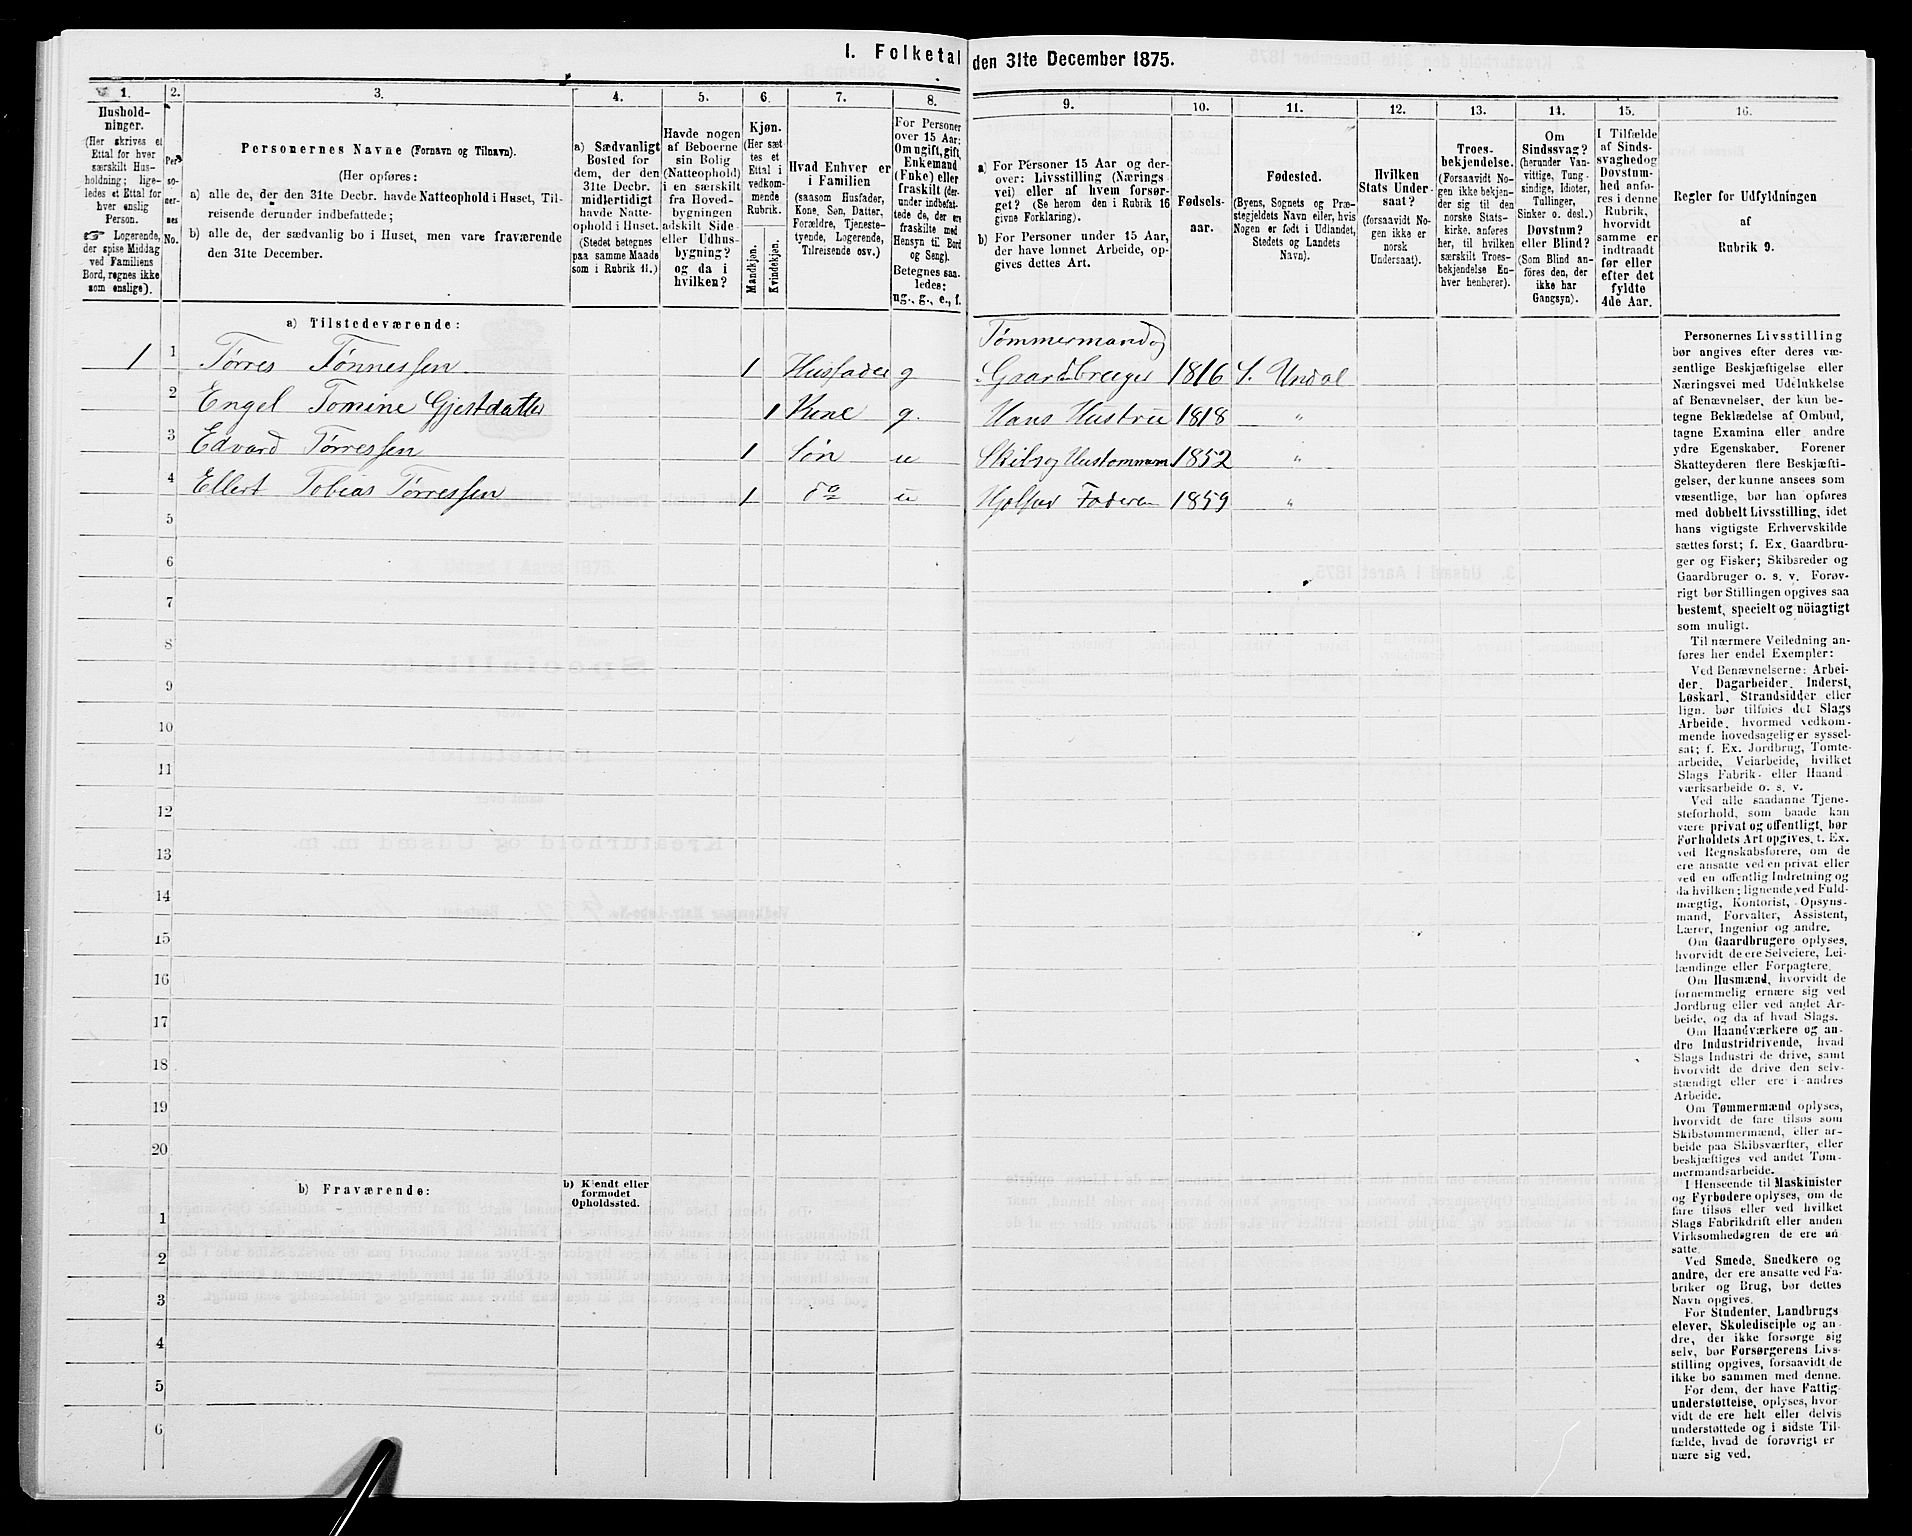 I. Folketal den 31te December 1875.
1. 2. 3. 4. 5. 6. 7. 8. 9. 10. 11. 12. 13. 14. 15. 16.
Hushold-
ninger.
(Her skrives et
Ettal for hver
særskilt Hus-
holdning; lige-
ledes et Ettal for
hver enslig
Person.
☞ Logerende,
der spise Middag
ved Familiens
Bord, regnes ikke
som enslige).
Per-
so-
ner-
nes
No.
Personernes Navne (Fornavn og Tilnavn).
(Her opføres:
a) alle de, der den 31te Decbr. havde Natteophold i Huset, Til-
reisende derunder indbefattede;
b) alle de, der sædvanlig bo i Huset, men vare fraværende
den 31te December.
a) Sædvanligt
Bosted for
dem, der den
31te Decbr.
midlertidigt
havde Natte-
ophold i Huset.
(Stedet betegnes
paa samme Maade
som i Rubrik 11.)
Havde nogen
af Beboerne
sin Bolig
(Natteophold)
i en særskilt
fra Hoved-
bygningen
adskilt Side-
eller Udhus-
bygning?
og da i
hvilken?
Kjøn.
(Her sæt-
tes et
Ettal i
vedkom-
mende
Rubrik.
Mandkjøn.
Kvindekjøn.
Hvad Enhver er
i Familien
(saasom Husfader,
Kone, Søn, Datter,
Forældre, Tjeneste-
tyende, Logerende,
Tilreisende osv.)
For Personer
over 15 Aar:
Om ugift, gift,
Enkemand
(Enke) eller
fraskilt (der-
under indbefat-
tede de, der ere
fraskilte med
Hensyn til Bord
og Seng).
Betegnes saa-
ledes:
ug., g., e., f.
a) For Personer 15 Aar og der-
over: Livsstilling (Nærings-
vei) eller af hvem forsør-
get? (Se herom den i Rubrik 16
givne Forklaring).
b) For Personer under 15 Aar,
der have lønnet Arbeide, op-
gives dettes Art.
Fødsels-
aar.
Fødested.
(Byens, Sognets og Præ-
stegjeldets Navn eller, hvis
Nogen er født i Udlandet,
Stedets og Landets
Navn).
Hvilken
Stats Under-
saat?
(forsaavidt No-
gen ikke er
norsk
Undersaat).
Troes-
bekjendelse.
(Forsaavidt No-
gen ikke bekjen-
der sig til den
norske Stats-
kirke, anføres
her, til hvilken
særskilt Troes-
bekjendelse En-
hver henhører).
Om
Sindssvag?
(herunder Van-
vittige, Tung-
sindige, Idioter,
Tullinger,
Sinker o. desl.)
Døvstum?
eller Blind?
(Som Blind an-
føres den, der
ikke har
Gangsyn).
I Tilfælde
af Sinds-
svaghed og
Døvstum-
hed anfø-
res i denne
Rubrik,
hvorvidt
samme er
indtraadt
før eller
efter det
fyldte
4de Aar.
Regler for Udfyldningen
af
Rubrik 9.
a) Tilstedeværende:
1 1 Tørres Tønnessen 1 Husfader g Tømmermand og
Gaardbruger 1816 S. Undal
2 Engel Tomine Gjestdatter 1 Kone g. Hans Hustru 1818 "
3 Edvard Tørressen 1 Søn u Skibs og Hustømmerm 1852 "
4 Ellert Tobias Tørressen 1 do u Hjelper Faderen 1859 "
5
6
7
8
9
10
11
12
13
14
15
16
17
18
19
20
b) Fraværende:
b) Kjendt eller
formodet
Opholdssted.
1
2
3
4
5
6
Personernes Livsstilling
bør angives efter deres væ-
sentlige Beskjæftigelse eller
Næringsvei med Udelukkelse
af Benævnelser, der kun be-
tegne Beklædelse af Ombud,
tagne Examina eller andre
ydre Egenskaber. Forener
Skatteyderen flere Beskjæfti-
gelser, der kunne ansees som
væsentlige, bør han opføres
med dobbelt Livsstilling, idet
hans vigtigste Erhvervskilde
sættes først; f. Ex. Gaardbru-
ger og Fisker; Skibsreder og
Gaardbruger o. s. v. Forøv-
rigt bør Stillingen opgives saa
bestemt, specielt og nöiagtigt
som muligt.
Til nærmere Veiledning an-
føres her endel Exempler:
Ved Benævnelserne: Arbei-
der, Dagarbeider, Inderst,
Løskarl, Strandsidder eller
lign. bør tilføies det Slags
Arbeide, hvormed vedkom-
mende hovedsagelig er syssel-
sat; f. Ex. Jordbrug, Tomte-
arbeide, Veiarbeide, hvilket
Slags Fabrik- eller Haand
værksarbeide o. s. v.
Ved alle saadanne Tjene-
steforhold, som baade kan
være privat og offentligt, bør
Forholdets Art opgives, t. Ex.
ved Regnskabsførere, om de
ere ansatte ved en privat eller
ved en offentlig Indretning og
da hvilken; lignende ved Fuld-
mægtig, Kontorist, Opsyns-
mand, Forvalter, Assistent,
Lærer, Ingeniør og andre.
Om Gaardbrugere oplyses,
hvorvidt de ere Selveiere, Lei-
lændinge eller Forpagtere.
Om Husmænd, hvorvidt de
fornemmelig ernære sig ved
Jordbrug eller ved andet Ar-
beide, og da af hvad Slags.
Om Haandværkere og an-
dre Industridrivende, hvad
Slags Industri de drive, samt
hvorvidt de drive den selv-
stændigt eller ere i andres
Arbeide.
Om Tømmermænd oplyses,
hvorvidt de fare tilsøs som
Skibstømmermænd, eller ar-
beide paa Skibsværfter, eller
beskjæftiges ved andet Tøm-
mermandsarbeide.
I Henseende til Maskinister
og Fyrbødere oplyses, om de
fare tilsøs eller ved hvilket
Slags Fabrikdrift eller anden
Virksomhedsgren de ere an-
satte.
Ved Smede, Snedkere og
andre, der ere ansatte ved Fa-
briker og Brug, bør dettes
Navn opgives.
For Studenter, Landbrugs
elever, Skoledisciple og an-
dre, der ikke forsørge sig
selv, bør Forsørgerens Livs-
stilling opgives, forsaavidt de
ikke bo sammen med denne.
For dem, der have Fattig-
understøttelse, oplyses, hvor-
vidt de ere helt eller delvis
understøttede og i sidste Til-
fælde, hvad de forøvrigt er
nære sig ved.